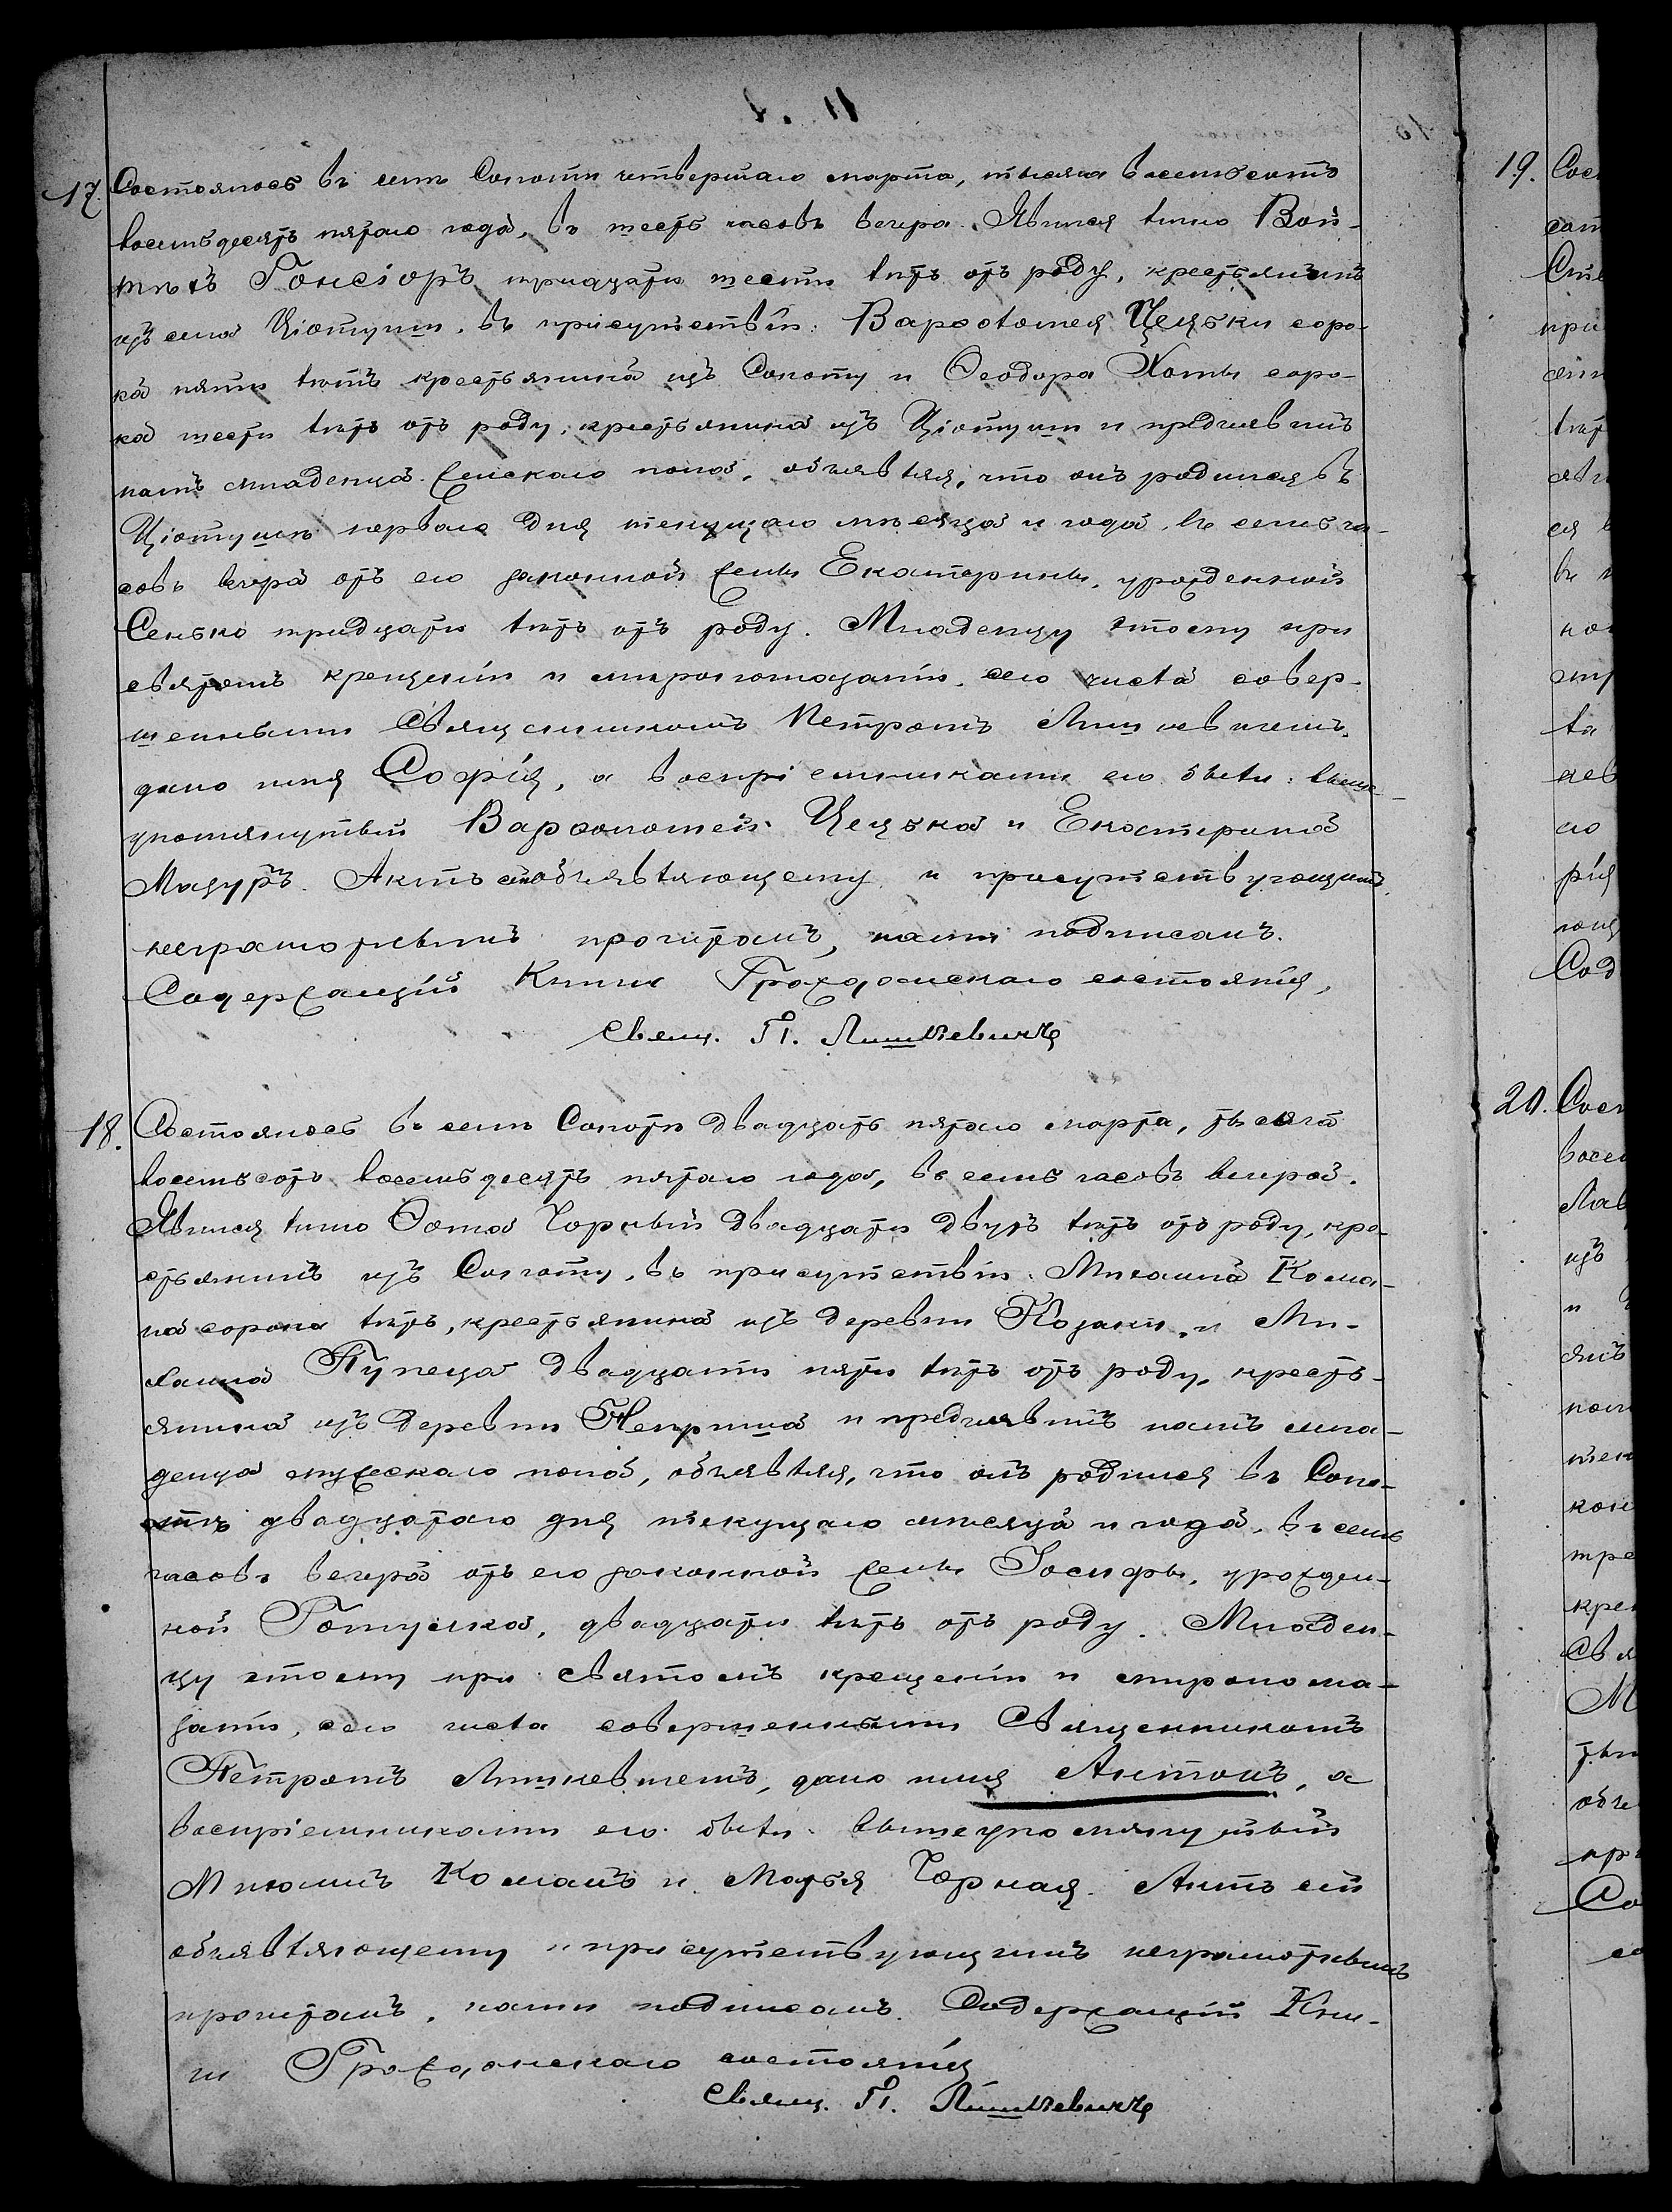 17. Состоялось въ селѣ Сопоти четвертаго марта, тысяча восемьсотъ
восемьдесятъ пятаго года, въ шесть часовъ вечера. Явился лично Вой-
тѣхъ Гонсіоръ тридцати шести лѣтъ отъ роду, крестьянинъ
изъ села Ціотуши, въ присутствіи: Варѳоломея Цецьки соро-
ка пяти лѣтъ крестьянина изъ Сопоту и Ѳеодора Хомы соро-
ка шести лѣтъ отъ роду, крестьянина изъ Ціотуши и предъявилъ
намъ младенца женскаго пола, объявляя, что онъ родился въ
Ціотушѣ перваго дня текущаго мѣсяца и года, въ семь ча-
совъ вечера отъ его законной жены Екатерины, урожденной
Сенько тридцати лѣтъ отъ роду. Младенцу этому при
святомъ крещеніи и миропомазаніи, сего числа совер-
шенными Священникомъ Петромъ Лишкевичемъ,
дано имя Софія, а воспріемниками его были: выше-
упомянутый Варѳоломей Цецька и Екатерина
Мазуръ. Актъ сей объявляющему и присутствующимъ
неграмотнымъ прочитанъ, нами подписанъ.
Содержащій Книги Гражданскаго состоянія,
Свящ. П. Лишкевичъ
18. Состоялось въ селѣ Сопоти двадцать пятаго марта, тысяча
восемьсотъ восемьдесятъ пятаго года, въ семь часовъ вечера.
Явился лично Ѳома Чорный двадцати двухъ лѣтъ отъ роду, кре-
стьянинъ изъ Сопоту, въ присутствіи: Михаила Кома-
на сорока лѣтъ, крестьянина изъ деревни Козаки, и Ми-
хаила Купеца двадцати пяти лѣтъ отъ роду, кресть-
янина изъ деревни Неприша и предъявилъ намъ мла-
денца мужескаго пола, объявляя, что онъ родился въ Сопо-
тѣ двадцатаго дня текущаго мѣсяца и года, въ семь
часовъ вечера отъ его законной жены Іосифы, урожден-
ной двадцати лѣтъ отъ роду. Младен-
цу этому при святомъ крещеніи и миропома-
заніи, сего числа совершенными Священникомъ
Петромъ Лишкевичемъ, дано имя Антонъ, а
воспріемниками его были: вышеупомянутый
Михаилъ Команъ и Марья Чорная. Актъ сей
объявляющему и присутствующимъ неграмотнымъ
прочитанъ, нами подписанъ. Содержащій Кни-
ги Гражданскаго состоянія
Свящ. П. Лишкевичъ
19.
20.